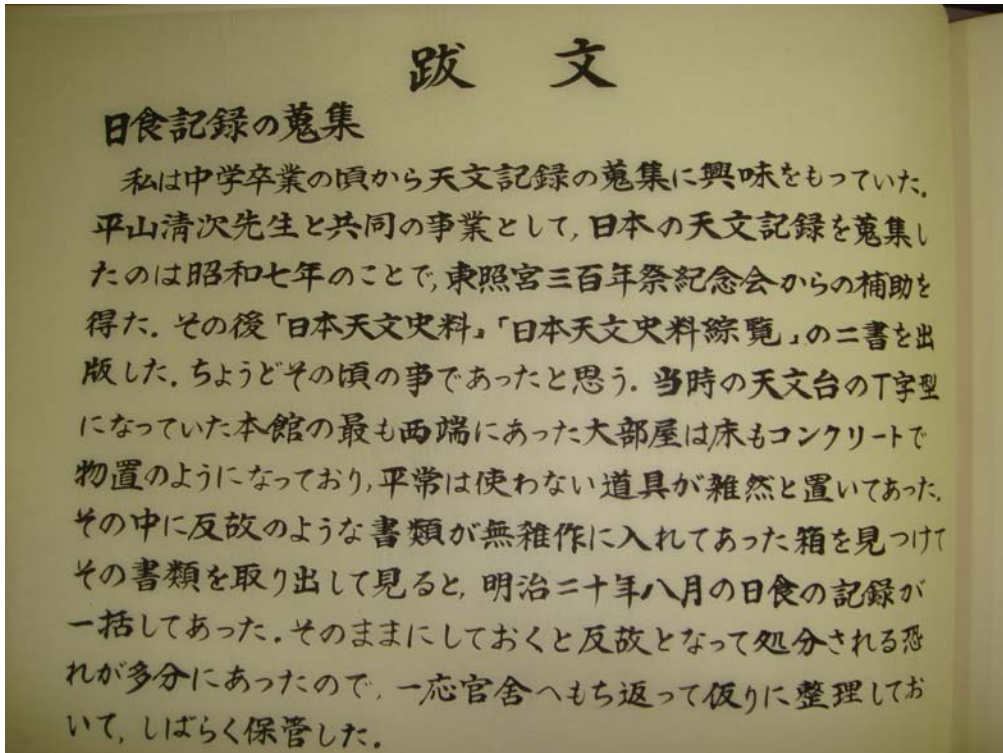 跋 文
日食記録の蒐集
私は中学卒業の頃から天文記録の蒐集に興味をもっていた.
平山清次先生と共同の事業として,日本の天文記録を蒐集し
たのは昭和七年のことで,東照宮三百年祭紀念会からの補助を
得た.その後「日本天文史料」「日本天文史料綜覧」の二書を出
版した.ちょうどその頃の事であったと思う.当時の天文台のT字型
になっていた本館の最も西端にあった大部屋は床もコンクリートで
物置のようになっており,平常は使わない道具が雑然と置いてあった.
その中に反故のような書類が無雑作に入れてあった箱を見つけて
その書類を取り出して見ると,明治二十年八月の日食の記録が
一括してあった.そのままにしておくと反故となって処分される恐
れが多分にあったので,一応官舎へもち返って仮りに整理してお
いて,しばらく保管した.